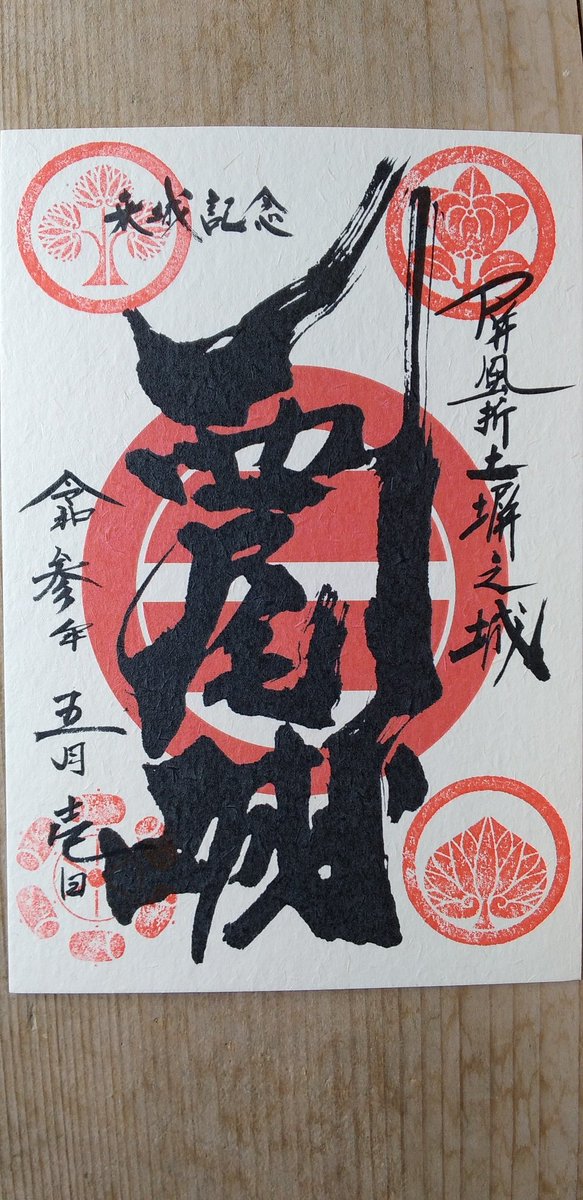 来城記念
屏風折土塀之城
西尾城
令和参年 五月壱日